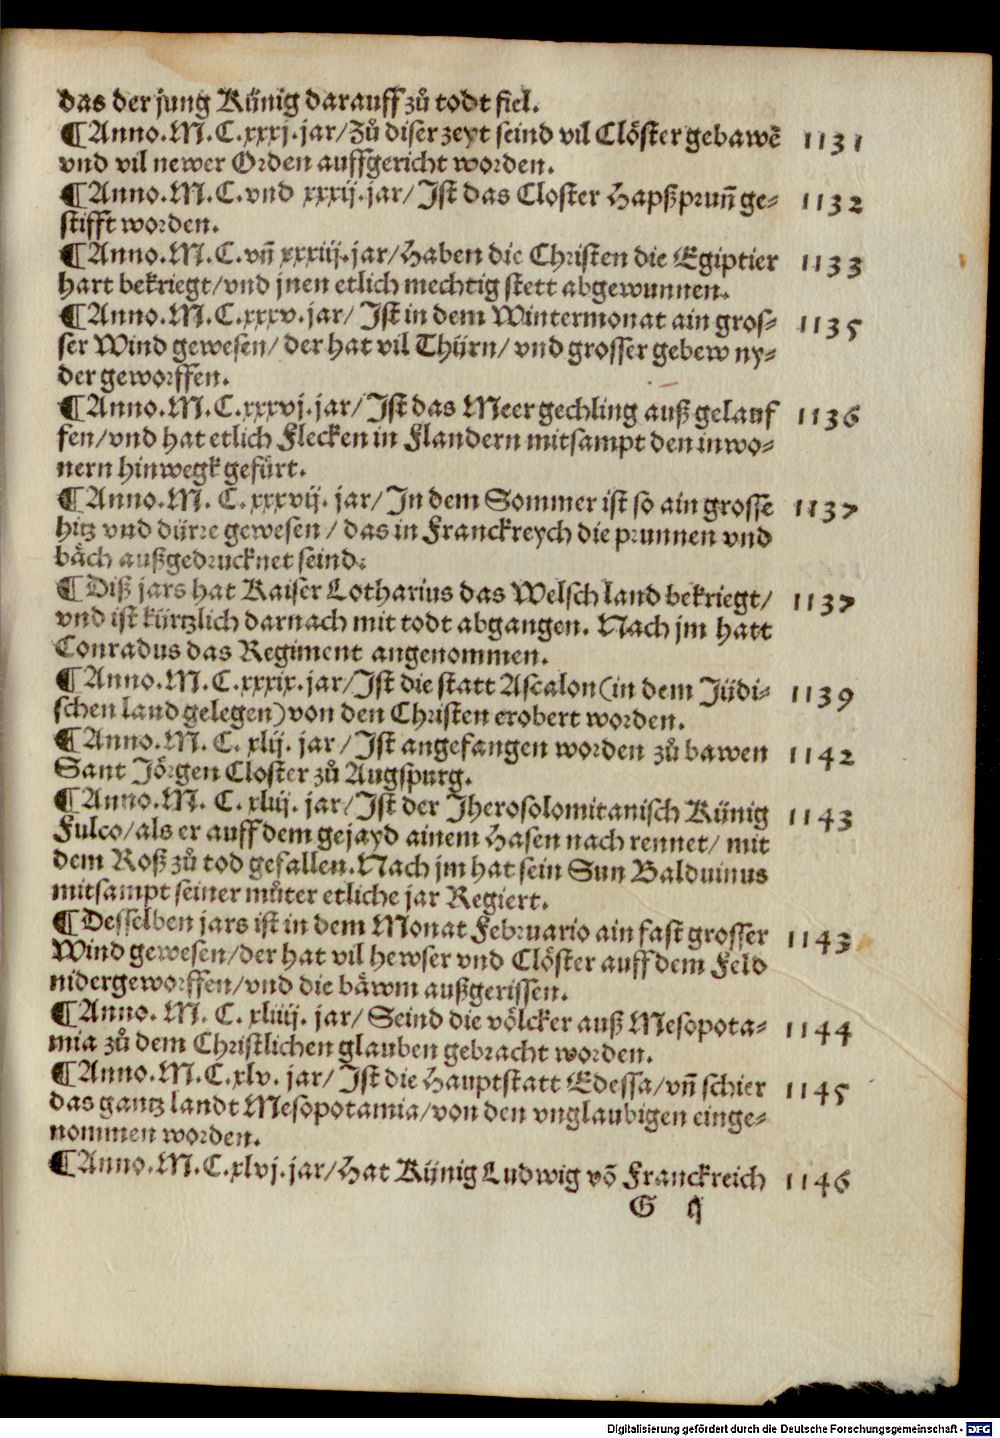 das der jung Künig darauff zů todt fiel.
¶ Anno. M. C. xxxj. jar/ Zů diser zeyt seind vil Clöster gebawē 1131
vnd vil newer Orden auffgericht worden.
¶ Anno. M. C. vnd xxxij. jar/ Ist das Closter Hapßprun̄ ge- 1132
stifft worden.
¶ Anno. M. C. vn̄ xxxiij. jar/ Haben die Christen die Egiptier 1133
hart bekriegt/ vnd jnen etlich mechtig stett abgewunnen.
¶ Anno. M. C. xxxv. jar/ Ist in dem Wintermonat ain gros- 1135
ser Wind gewesen/ der hat vil Thürn/ vnd grosser gebew ny-
der geworffen.
¶ Anno. M. C. xxxvj. jar/ Ist das Meer gechling auß gelauf 1136
fen/ vnd hat etlich Flecken in Flandern mitsampt den inwo-
nern hinwegk gefürt.
¶ Anno. M. C. xxxvij. jar/ In dem Sommer ist so ain grosse 1137
hitz vnd dürre gewesen/ das in Franckreych die prunnen vnd
bäch außgedrucknet seind.
¶ Diß jars hat Kaiser Lotharius das Welsch land bekriegt/ 1137
vnd ist kürtzlich darnach mit todt abgangen. Nach jm hatt
Conradus das Regiment angenommen.
¶ Anno. M. C. xxxix. jar/ Ist die statt Ascalon (in dem Jüdi- 1139
schen land gelegen) von den Christen erobert worden.
¶ Anno. M. C. xlij. jar/ Ist angefangen worden zů bawen 1142
Sant Jörgen Closter zů Augspurg.
¶ Anno. M. C. xliij. jar/ Ist der Jherosolomitanisch Künig 1143
Fulco/ als er auff dem gejayd ainem Hasen nach rennet/ mit
dem Roß zů tod gefallen. Nach jm hat sein Sun Balduinus
mitsampt seiner můter etliche jar Regiert.
¶ Desselben jars ist in dem Monat Februario ain fast grosser 1143
Wind gewesen/ der hat vil hewser vnd Clöster auff dem Feld
nidergeworffen/ vnd die bäwm außgerissen.
¶ Anno. M. C. xliiij. jar/ Seind die völcker auß Mesopota- 1144
mia zů dem Christlichen glauben gebracht worden.
¶ Anno. M. C. xlv. jar/ Ist die Hauptstatt Edessa/ vn̄ schier 1145
das gantz landt Mesopotamia/ von den vnglaubigen einge-
nommen worden.
¶ Anno. M. C. xlvj. jar/ Hat Künig Ludwig vō Franckreich 1146
G ij
Digitalisierung gefördert durch die Deutsche Forschungsgemeinschaft - DFG